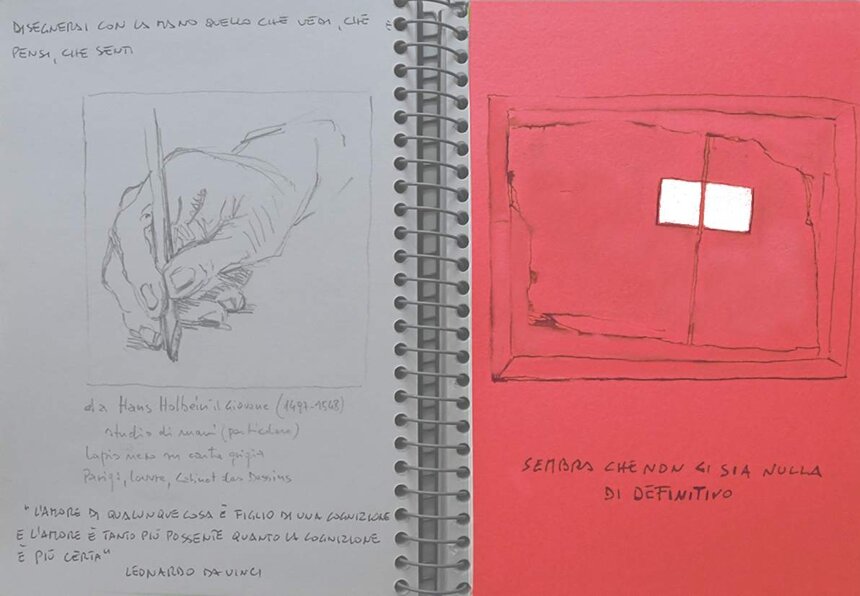 DISEGNERAI CON LA MANO QUELLO CHE VEDI, CHE
PENSI, CHE SENTI
da Hans Holbein il Giovane (1497-1543)
studio di mani (particolare)
lapis nero su carta grigia
Parigi, Louvre, Cabinet des Dessins
"L'AMORE DI QUALUNQUE COSA È FIGLIO DI UNA COGNIZIONE
E L'AMORE È TANTO PIÙ POSSENTE QUANTO LA COGNIZIONE
È PIÙ CERTA"
LEONARDO DA VINCI
SEMBRA CHE NON CI SIA NULLA
DI DEFINITIVO